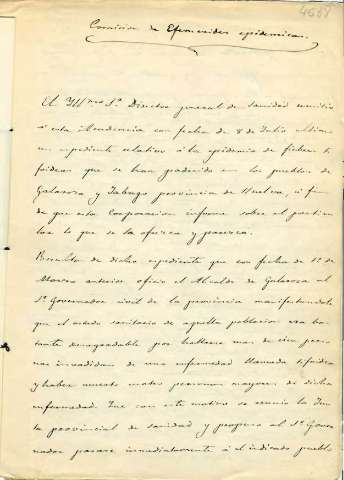 4657
Comision de Efemerides epidemicas.
El Ylmo Sr. Director general de Sanidad remitió
á esta Academia con fecha de 8 de Julio ultimo
un espediente relativo á la epidemia de fiebres ti
foideas que se han padecido en los pueblos de
Galaroza y Jabugo provincia de Huelva, á fin
de que esta Corporacion informe sobre el particu
lar lo que se la ofrezca y parezca.
Resulta de dicho espediente que con fecha de 1º de
Marzo anterior ofició el Alcalde de Galaroza al
Sr. Governador civil de la provincia manifestandole
que el estado sanitario de aquella poblacion era bas
tante desagradable por hallarse mas de cien perso
nas invadidas de una enfermedad llamada tifoidea
y haber muerto personas mayores de dicha
enfermedad. Que con este motivo se reunió la Jun
ta provincial de sanidad y propuso al Sr. Gover
nador pasase inmediatamente á el indicado pueblo